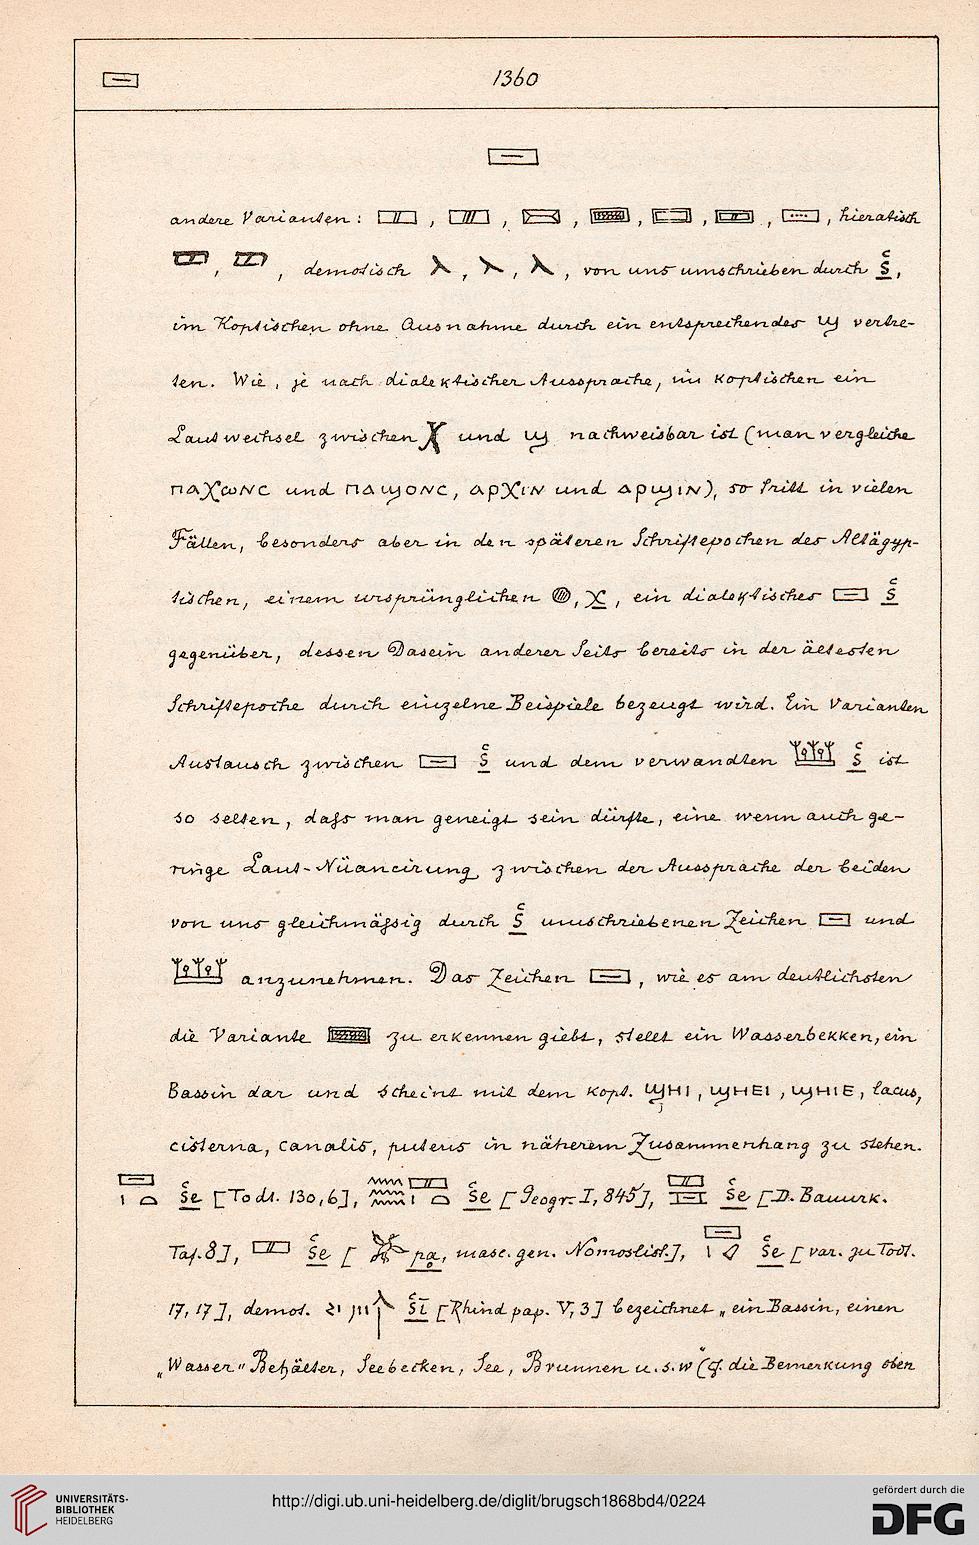 1360
andere Varianten: , , , , , , , hieratisch
, , demotisch , , , von uns umschrieben durch š,
im Koptischen ohne Ausnahme durch ein entsprechendes ϣ vertre-
ten. Wie, je nach dialektischer Aussprache, im koptischen ein
Lautwechsel zwischen ϫ und ϣ nachweisbar ist (man vergleiche
ⲡⲁϫⲱⲛⲥ und ⲡⲁϣⲟⲛⲥ, ⲁⲣϫⲓⲛ und ⲁⲣϣⲓⲛ), so tritt in vielen
Fällen, besonders aber in den späteren Schriftepochen des Altägyp-
tischen, einem ursprünglichen 𓐍, χ, ein dialektisches 𓈙 š
gegenüber, dessen Dasein anderer Seits bereits in der ältesten
Schriftepoche durch einzelne Beispiele bezeugt wird. Ein Varianten
Austausch zwischen 𓈙 š und dem verwandten 𓆷 š ist
so selten, dafs man geneigt sein dürfte, eine wenn auch ge-
ringe Laut-Nüancirung zwischen der Aussprache der beiden
von uns gleichmäfsig durch š umschriebenen Zeichen 𓈙 und
𓆷 anzunehmen. Das Zeichen 𓈙, wie es am deutlichsten
die Variante zu erkennen giebt, stellt ein Wasserbekken, ein
Bassin dar und scheint mit dem kopt. ϣⲏⲓ, ϣⲏⲉⲓ, ϣⲏⲓⲉ, lacus,
cisterna, canalis, puteus in näherem Zusammenhang zu stehen.
še [Todt. 130,6], še [Geogr. I, 845], še [D. Bauurk.
Taf. 8], še [ pa, masc. gen. Nomoslist.], še [var. zu Todt.
17, 17], demot. šī [Rhind pap. V, 3] bezeichnet „ein Bassin, einen
„Wasser" Behälter, Seebecken, See, Brunnen u. s. w" (cf. die Bemerkung oben
UNIVERSITÄTS-
BIBLIOTHEK
HEIDELBERG
http://digi.ub.uni-heidelberg.de/diglit/brugsch1868bd4/0224
gefördert durch die
DFG